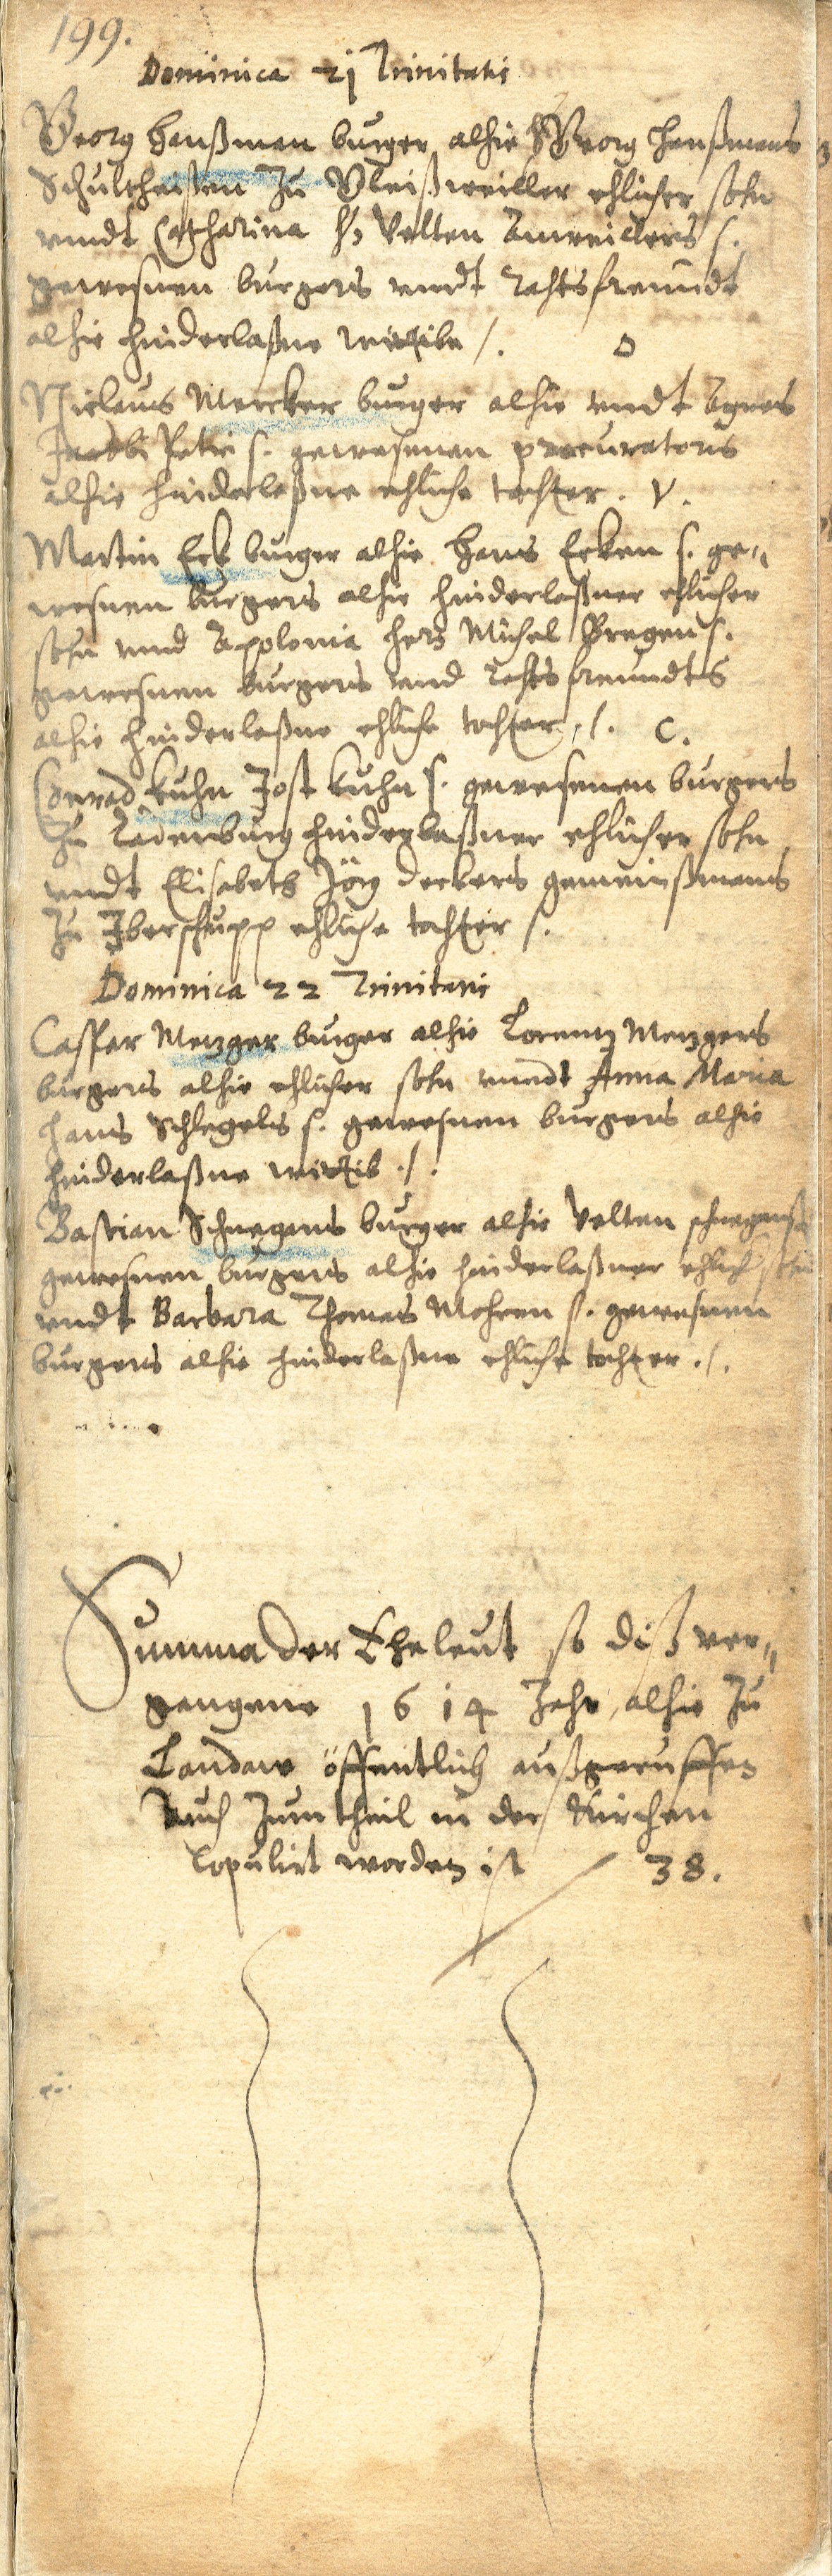 199.
Dominica 21 Trinitatis
Georg Hanßman burger alhie H Georg Hanßmans
Schultheißen zu Pleißweiller ehlicher sohn
vnndt Catharina H. Velten Anweillers s.
gewesnen burgers vndt Rahtsfreundt
alhie hinderlaßne wittibe /. O
Niclaus Mercker burger alhie vndt Agnes
Jacobi Petri s. gewesenen procuratoris
alhie hinderlaßne ehliche tochter. V.
Martin Eck burger alhie Hans Ecken s. ge„
wesnen burgers alhie hinderlaßner ehlicher
sohn vnnd Apolonia Herr Michel s.
gewesnen burgers vnd Rahtsfreundts
alhie hinderlaßne ehliche tochter /. C.
Conrad Kuhn Jost Kuhn s. gewesenen burgers
zu Ladenburg hinderlaßner ehlicher sohn
vndt Elisabeth Jörg Deckers gemeinßmans
zu ehliche tochter /.
Dominica 22 Trinitatis
Caspar Metzger burger alhie Lorentz Metzgers
burgers alhie ehlicher sohn vnndt Anna Maria
Hans Schlegels s. gewesnen burgers alhie
hinderlaßne wittib ./.
Bastian Schnegans burger alhie Velten schnegans
gewesnen burgers alhie hinderlaßner ehlich sohn
vndt Barbara Thomas Mohren s. gewesnen
burgers alhie hinderlaßne ehliche tochter ./.
Summa der Eheleut so diß ver„
gangene 1614 Jahr alhie zu
Landaw öffentlich außgeruffen
vnd zum theil in der Kirchen
Copulirt worden ist 38.